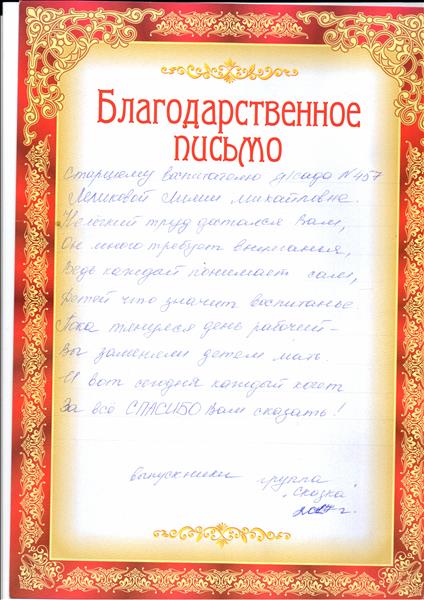 Благодарственное
письмо
Старшему воспитателю д/сада №457
Лилии Михайловне.
Нелёгкий труд достался Вам,
Он много требует внимания,
Ведь каждый понимает сам,
Детей что значит воспитанье.
Пока тянулся день рабочий –
Вы заменяли детям мать.
И вот сегодня каждый хочет
За всё СПАСИБО Вам сказать!
выпускники группа
"Сказка"